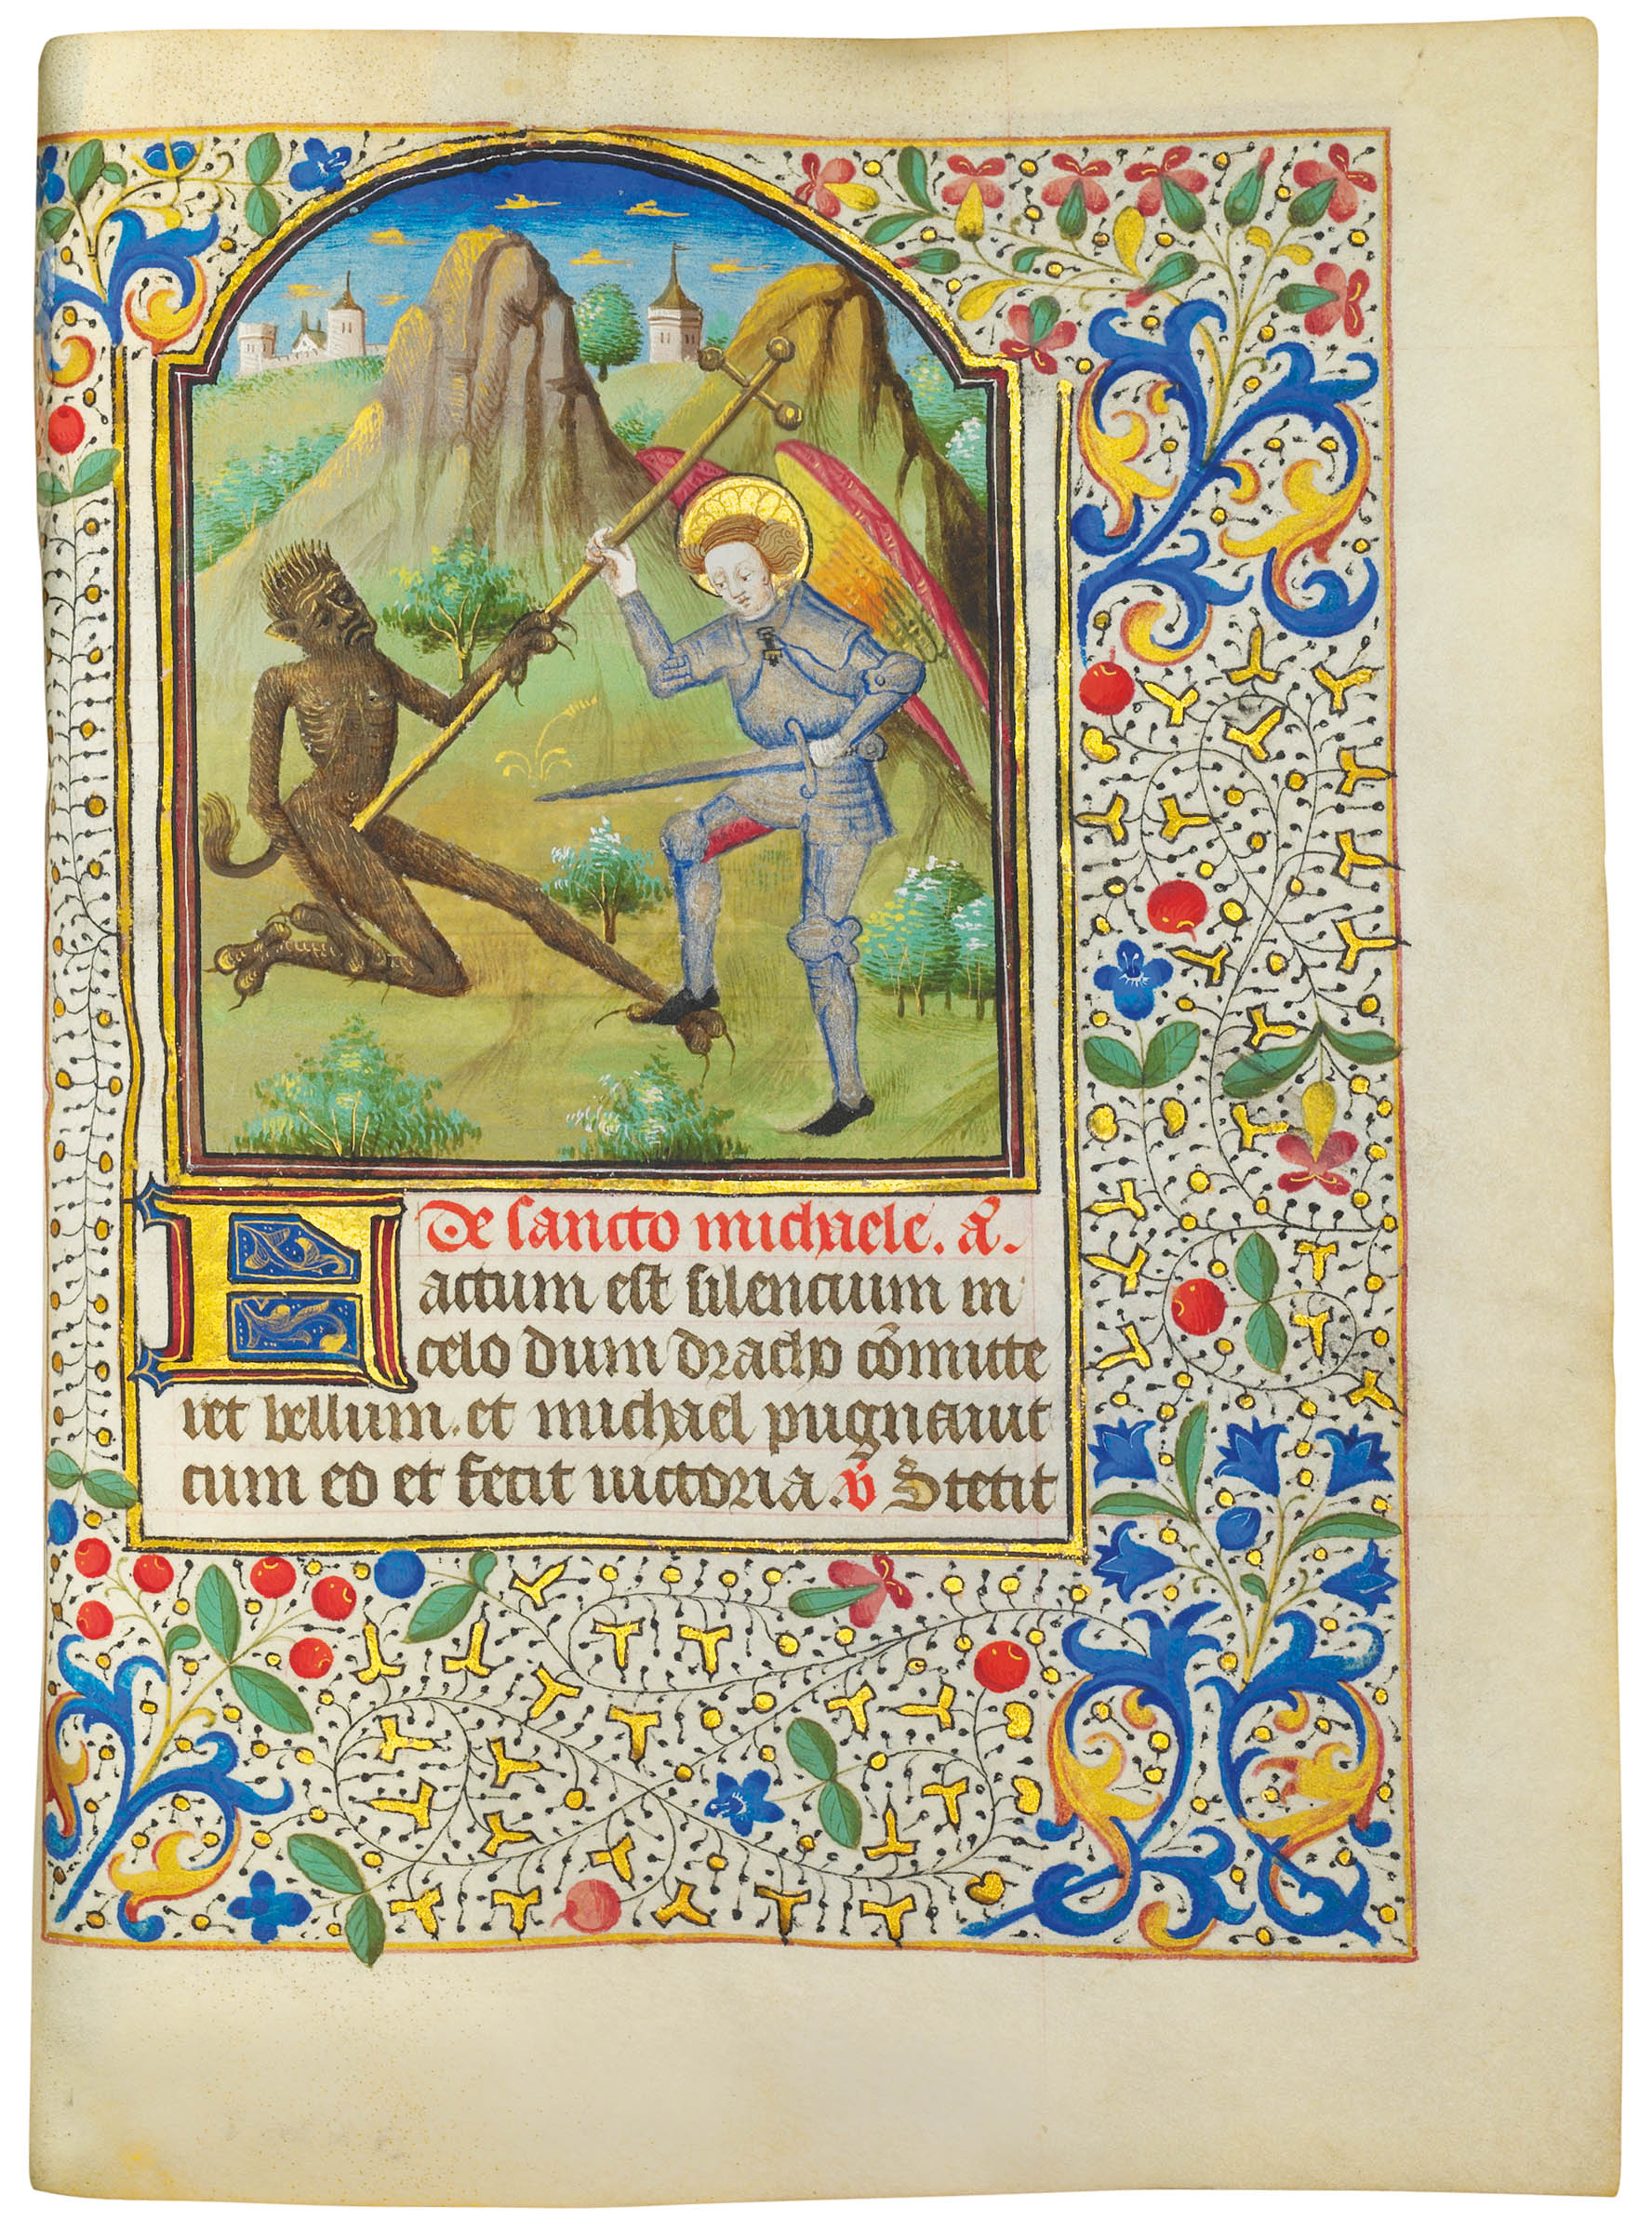 De sancto michaele. a̅.
Factum est silencium in
celo dum dracho cōmitte
ret bellum. et michael pugnauit
cum eo et fecit uictoria. v̄ Stetit